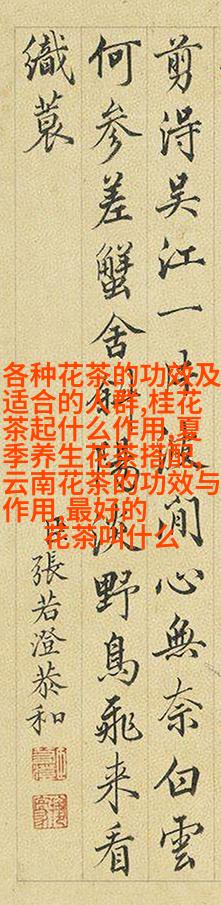 剪淂吳江一閒心無奈白雲
何参差蟹舍斜陽野鳥飛来看
織蓑
臣張若澄恭和
各种花茶的功效及
适合的人群,桂花
茶起什么作用,夏
季养生花茶搭配,
云南花茶的功效与
作用,最好的
花茶叫什么